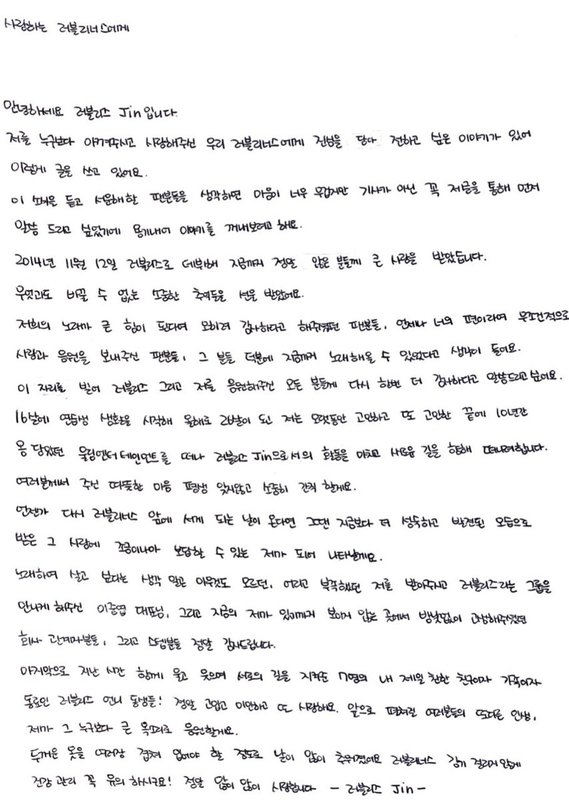 사랑하는 러블리너스에게
안녕하세요 러블리즈 Jin입니다.
저를 누구보다 아껴주시고 사랑해주신 우리 러블리너스에게 진심을 담아 전하고 싶은 이야기가 있어
이렇게 글을 쓰고 있어요.
이 소식을 듣고 서운해할 팬분들을 생각하면 마음이 너무 무겁지만 기사가 아닌 꼭 저를 통해 먼저
말씀 드리고 싶었기에 용기내어 이야기를 꺼내보려고 해요.
2014년 11월 12일 러블리즈로 데뷔해 지금까지 정말 많은 분들께 큰 사랑을 받았습니다.
무엇과도 바꿀 수 없는 소중한 추억들을 선물 받았어요.
저희의 노래가 큰 힘이 된다며 오히려 감사하다고 해주셨던 팬분들, 언제나 너의 편이라며 무조건적으로
사랑과 응원을 보내주신 팬분들, 그 분들 덕분에 지금까지 노래해올 수 있었다고 생각이 들어요.
이 자리를 빌어 러블리즈 그리고 저를 응원해주신 모든 분들께 다시 한번 더 감사하다고 말씀드리고 싶어요.
16살에 연습생 생활을 시작해 올해로 26살이 된 저는 오랫동안 고민하고 또 고민한 끝에 10년간
몸 담았던 울림엔터테인먼트를 떠나 러블리즈 Jin으로서의 활동을 마치고 새로운 길을 향해 떠나려합니다.
여러분께서 주신 따뜻한 마음 평생 잊지않고 소중히 간직 할게요.
언젠가 다시 러블리너스 앞에 서게 되는 날이 온다면 그땐 지금보다 더 성숙하고 발전된 모습으로
받은 그 사랑에 조금이나마 보답할 수 있는 제가 되어 나타날게요.
노래하며 살고 싶다는 생각 말곤 아무것도 모르던, 어리고 부족했던 저를 받아주시고 러블리즈라는 그룹을
만나게 해주신 이중엽 대표님, 그리고 지금의 제가 있기까지 보이지 않는 곳에서 밤낮없이 고생해주셨던
회사 관계자분들, 그리고 스텝분들 정말 감사드립니다.
마지막으로 지난 시간 함께 울고 웃으며 서로의 길을 지켜준 7명의 내 제일 친한 친구이자 가족이자
동료인 러블리즈 언니 동생들! 정말 고맙고 미안하고 또 사랑해요. 앞으로 펼쳐질 여러분들의 또다른 인생,
제가 그 누구보다 큰 목소리로 응원할게요.
두꺼운 옷을 여러장 겹쳐 입어야 할 정도로 날이 많이 추워졌어요 러블리너스 감기 걸리지 않게
건강 관리 꼭 유의 하시구요! 정말 많이 많이 사랑합니다 - 러블리즈 Jin -